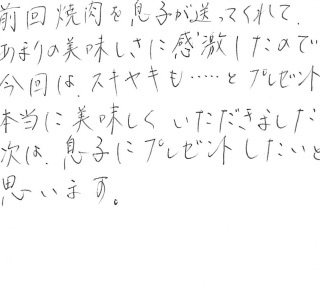 前回焼肉を息子が送ってくれて、
あまりの美味しさに感激したので
今回は、スキヤキも……とプレゼント
本当に美味しくいただきました
次は、息子にプレゼントしたいと
思います。